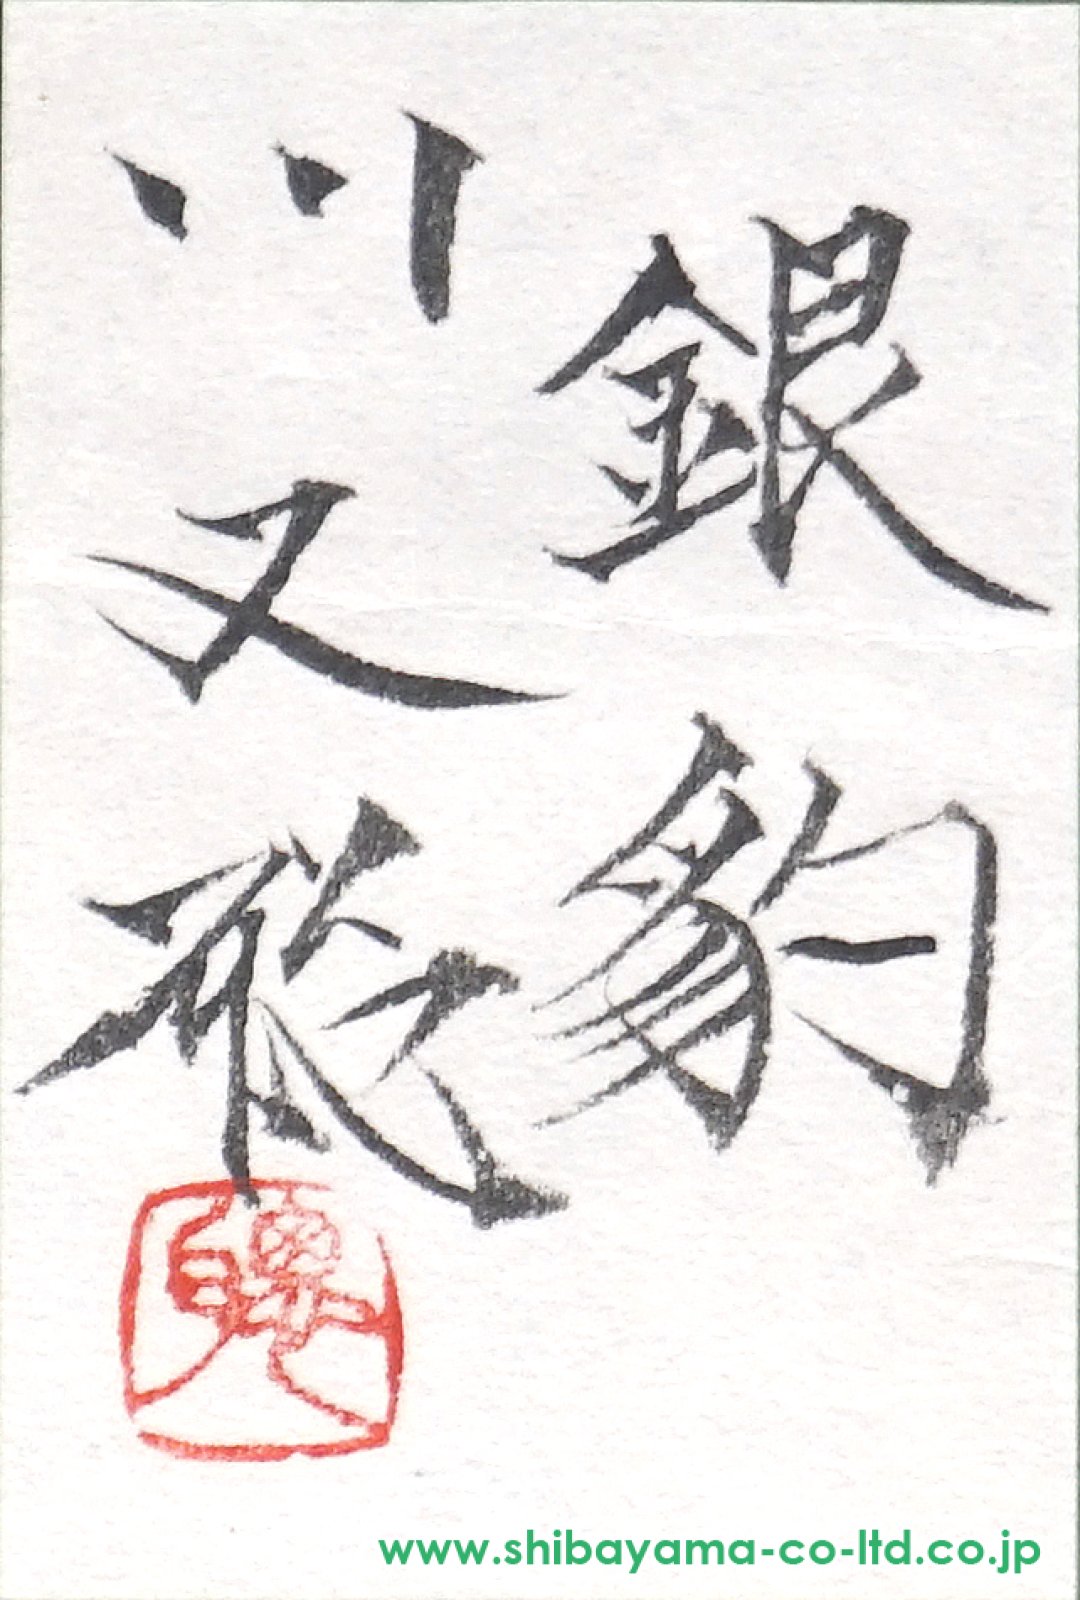 銀豹
川又聡
www.shibayama-co-ltd.co.jp